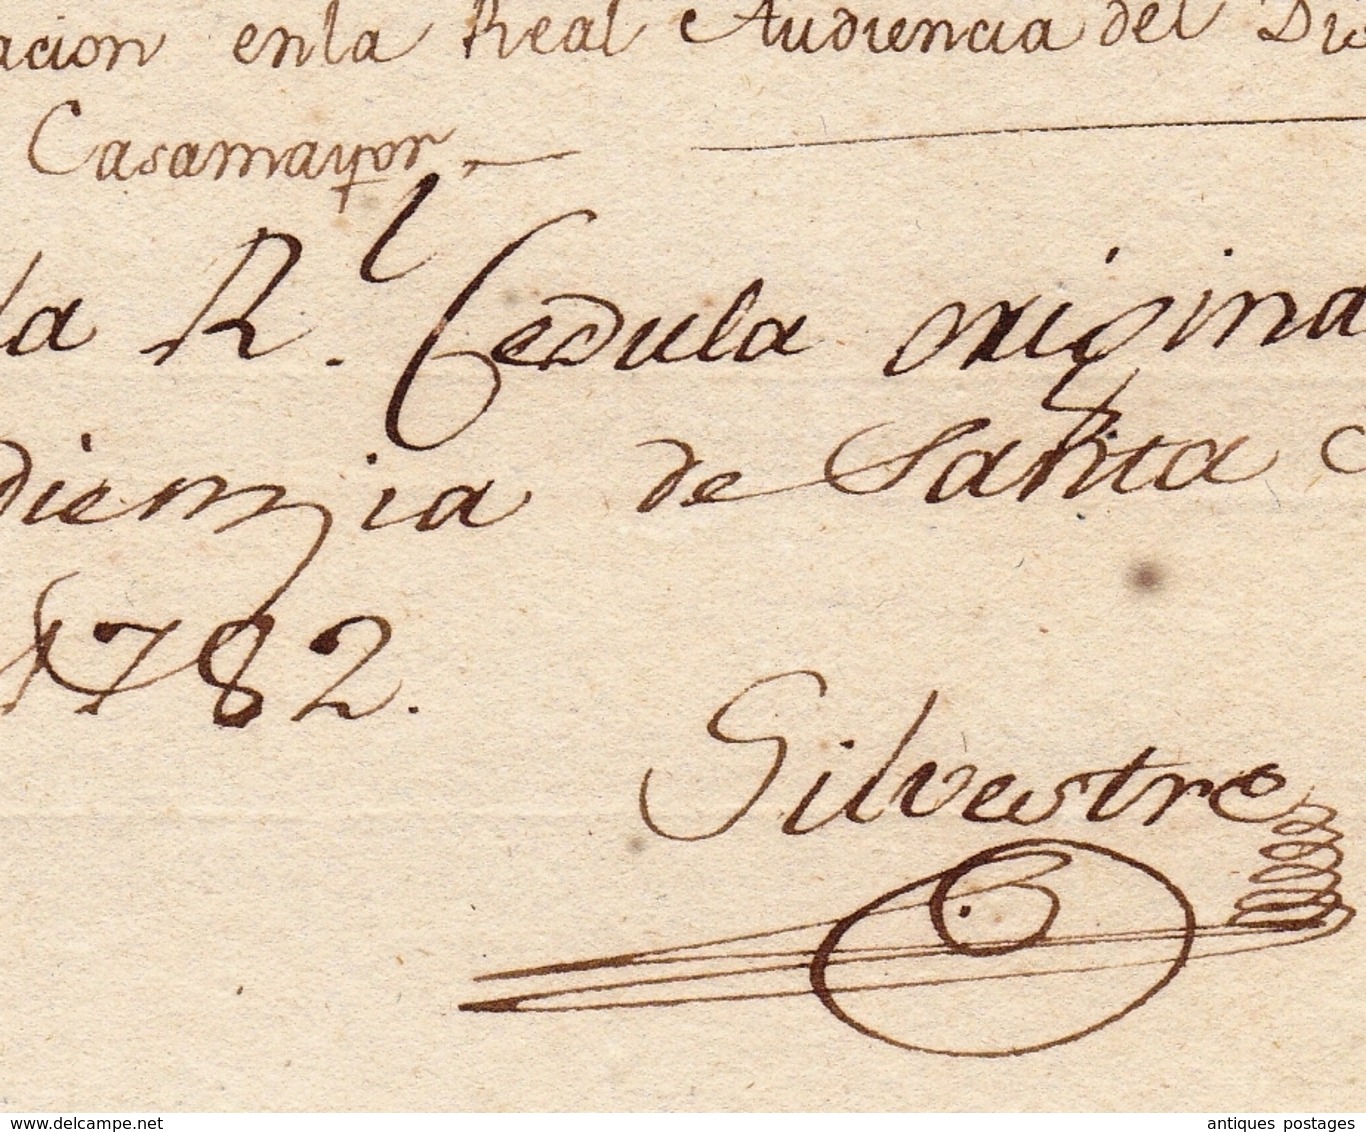 acion enla Real Audiencia del Dis
Casamayor.
la R.l Cedula origina
dienzia de Santa
1782.
Silvestre
www.delcampe.net
antiques postages